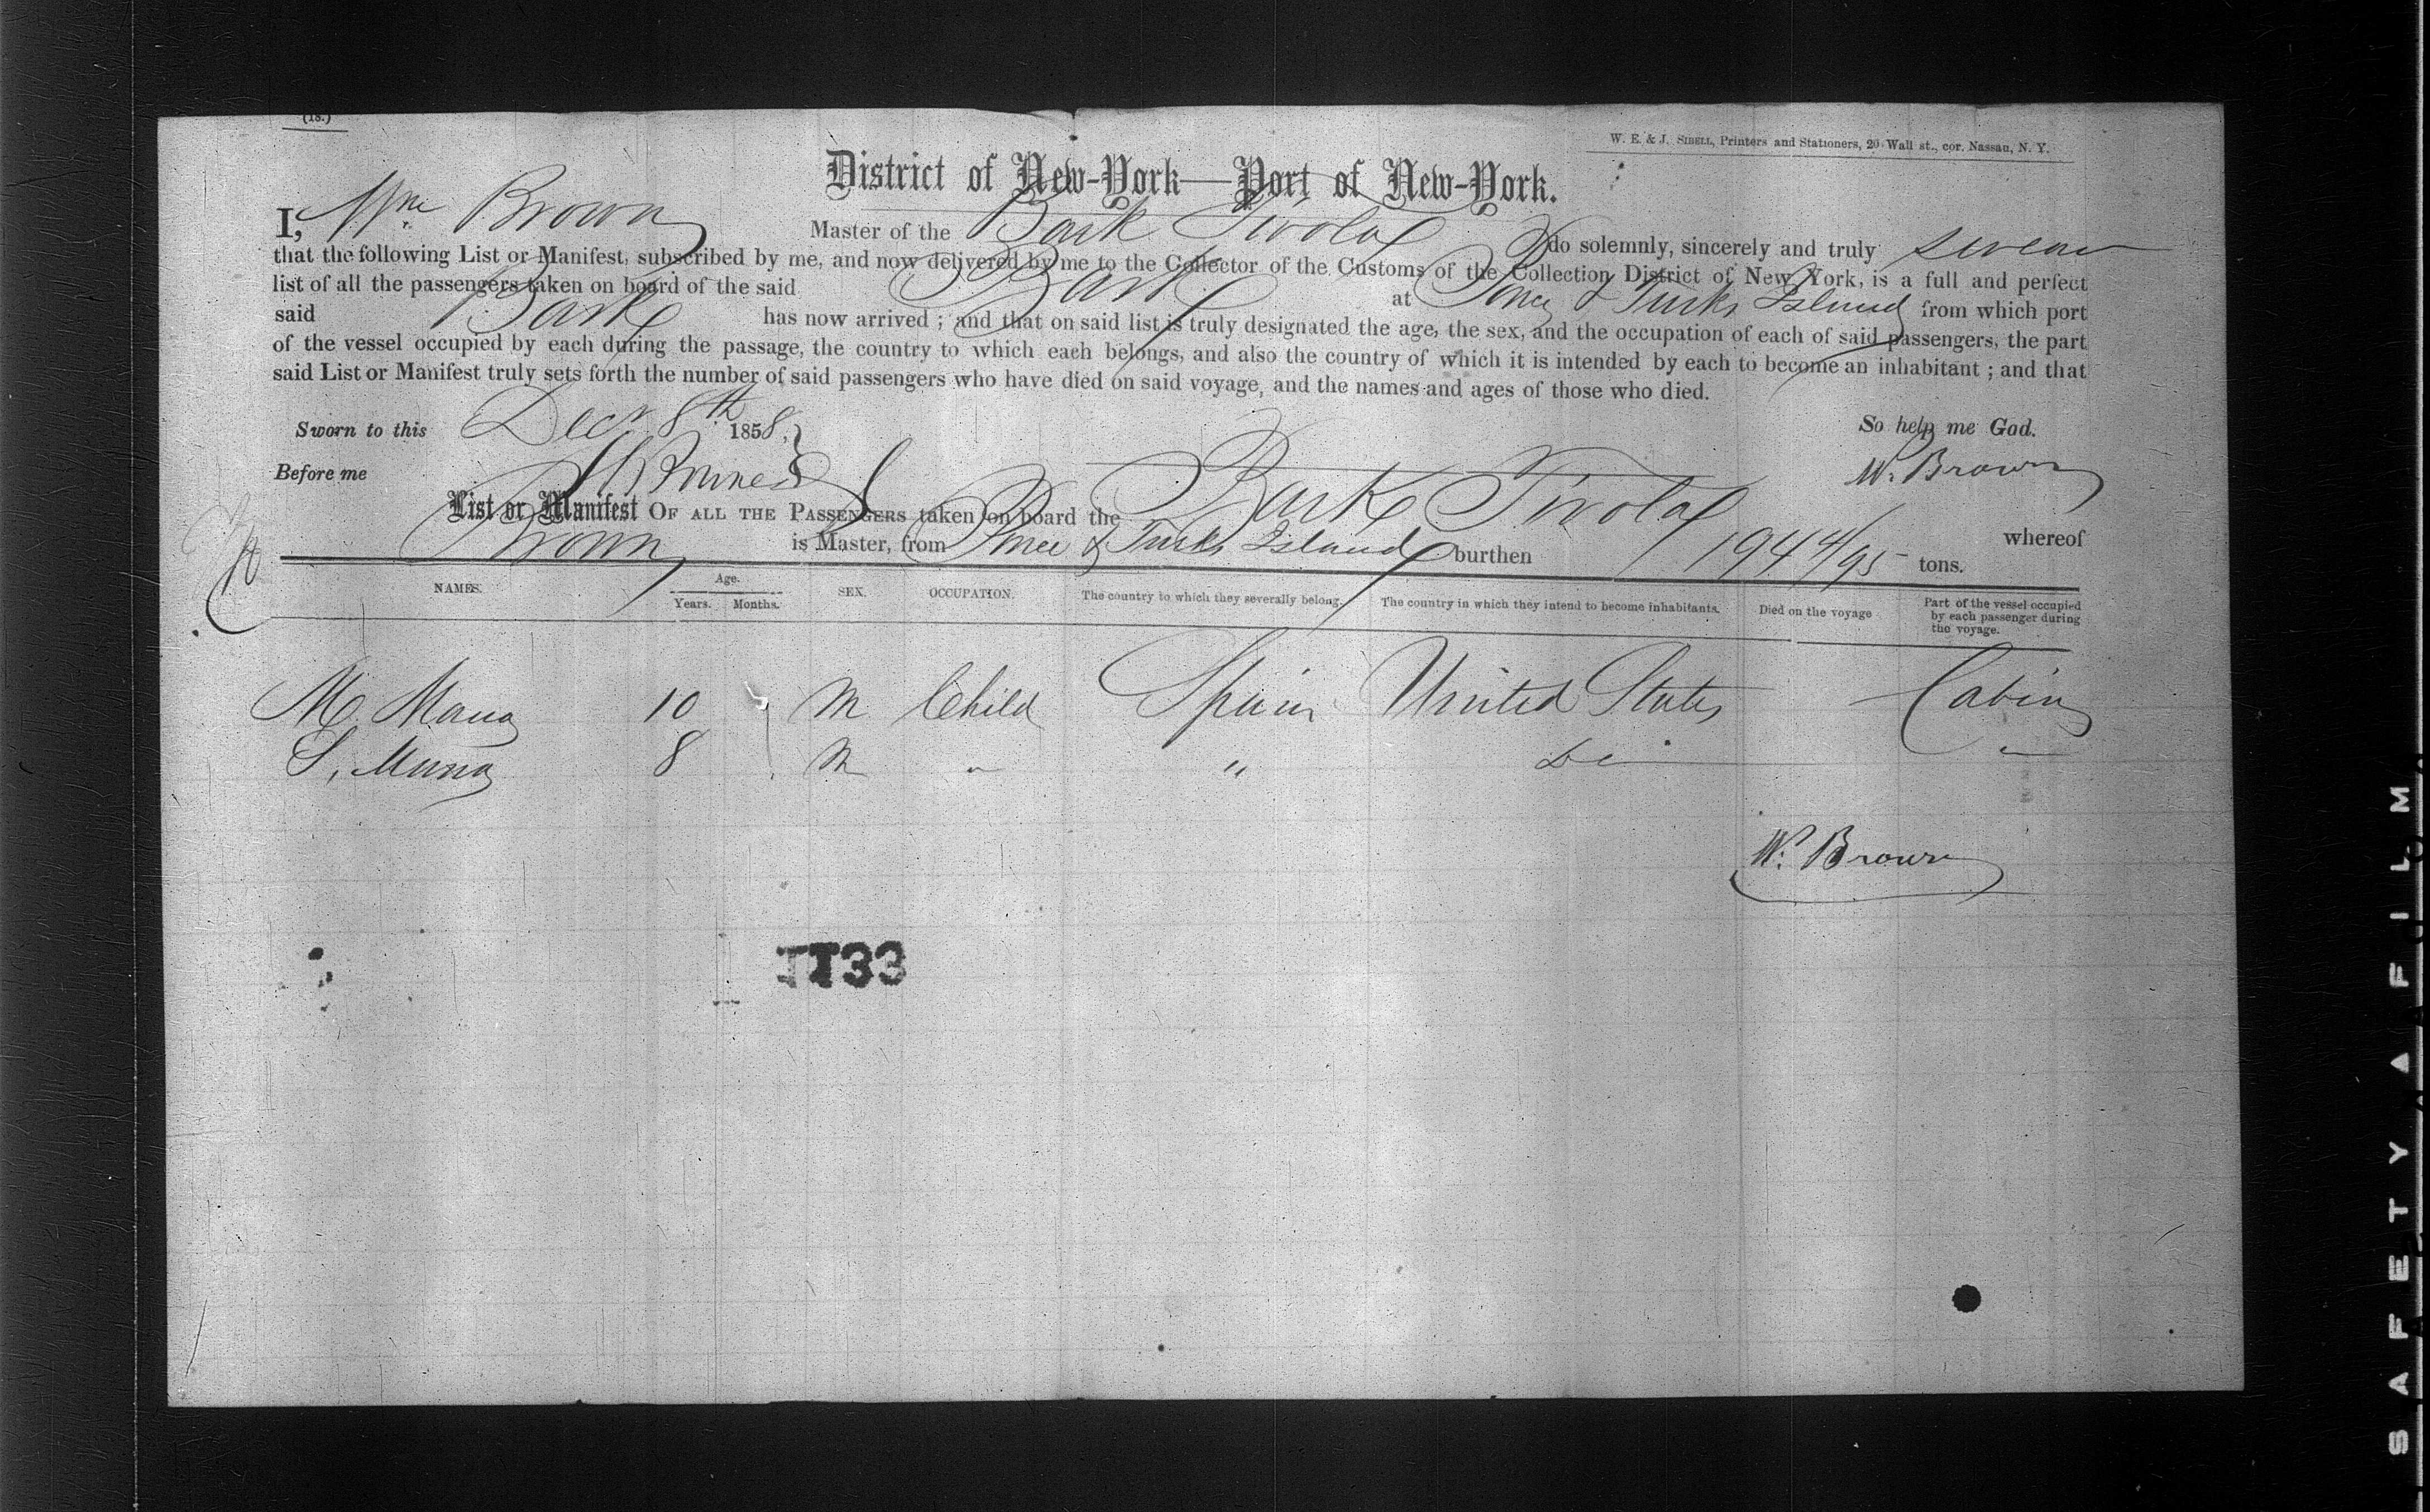 (18.)
W. E. & J. SIBELL, Printers and Stationers, 20 Wall st., cor. Nassau, N. Y.
District of New-York—Port of New-York.
I, Wm Brown Master of the Bark Tivola do solemnly, sincerely and truly swear
that the following List or Manifest, subscribed by me, and now delivered by me to the Collector of the Customs of the Collection District of New York, is a full and perfect
list of all the passengers taken on board of the said Bark at Ponce & Turks Island from which port
said Bark has now arrived ; and that on said list is truly designated the age, the sex, and the occupation of each of said passengers, the part
of the vessel occupied by each during the passage, the country to which each belongs, and also the country of which it is intended by each to become an inhabitant ; and that
said List or Manifest truly sets forth the number of said passengers who have died on said voyage, and the names and ages of those who died.
Sworn to this Decr 8th 1858, So help me God.
Before me W. Brown
List or Manifest OF ALL THE PASSENGERS taken on board the Bark Tivola whereof
Brown is Master, from Ponce & Turks Island burthen 194 4/95 tons.
NAMES. Age. Years. Months. SEX. OCCUPATION. The country to which they severally belong. The country in which they intend to become inhabitants. Died on the voyage Part of the vessel occupied by each passenger during the voyage.
M. 10 M Child Spain United States Cabin
S. 8 M " " Do "
W. Brown
1133
SAFETY FILM